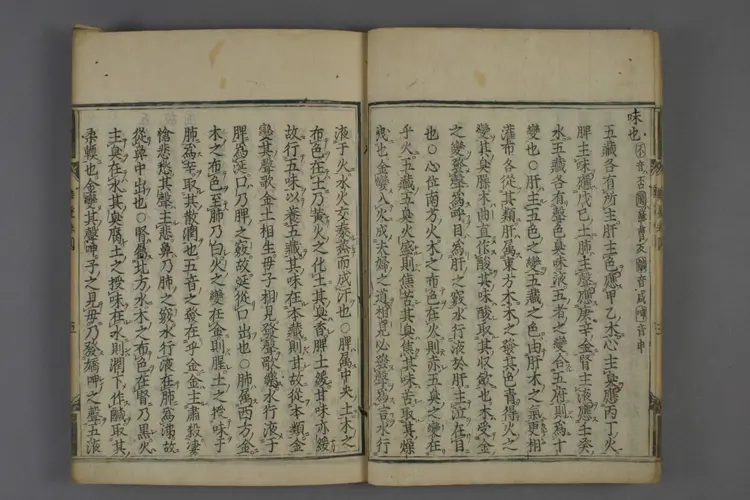 味也
五藏各有所主肝主色應甲乙木心主臭應丙丁火
脾主味應戊己土肺主聲應庚辛金腎主液應壬癸
水五藏各有聲色臭味液五者之變合五府則爲十
變也○肝主五色之變五藏之色由肝木之氣更相
灌布各從其類肝屬東方木木之發其色青得火之
變其臭臊木曲直作酸其味酸取其收斂也木受金
之變發聲爲呼目爲肝之竅水行液於肝主泣在目
也○心位南方火木之布色在火則赤五臭之變在
乎火五藏五臭火盛則焦苦其臭焦其味苦取其燥
也金變入火成夫婦之道相見必發聲爲言水行
液于火水火交泰蒸而成汗也○脾屬中央土木之
布色在土乃黃火之化土其臭香脾土緩甘味亦緩
故行五味以養五藏其味在本藏則甘故從本類金
變其聲歌金土相生母子相見發聲歌水行液于
脾爲涎口乃脾之竅故涎從口出也○肺爲西方金
木之布色至肺乃白火之變在金則腥土之授味于
肺爲辛取其散潤也五音之發在乎金金主肅殺悽
愴悲愁其聲主悲鼻乃肺之竅水行液在肺爲涕故
從鼻中出也○腎爲北方水木之布色在腎乃黑火
主臭在水其臭腐土之授味在水則潤下作鹹取其
柔軟也金變其聲呻子之見母乃發嬌呻之聲五液